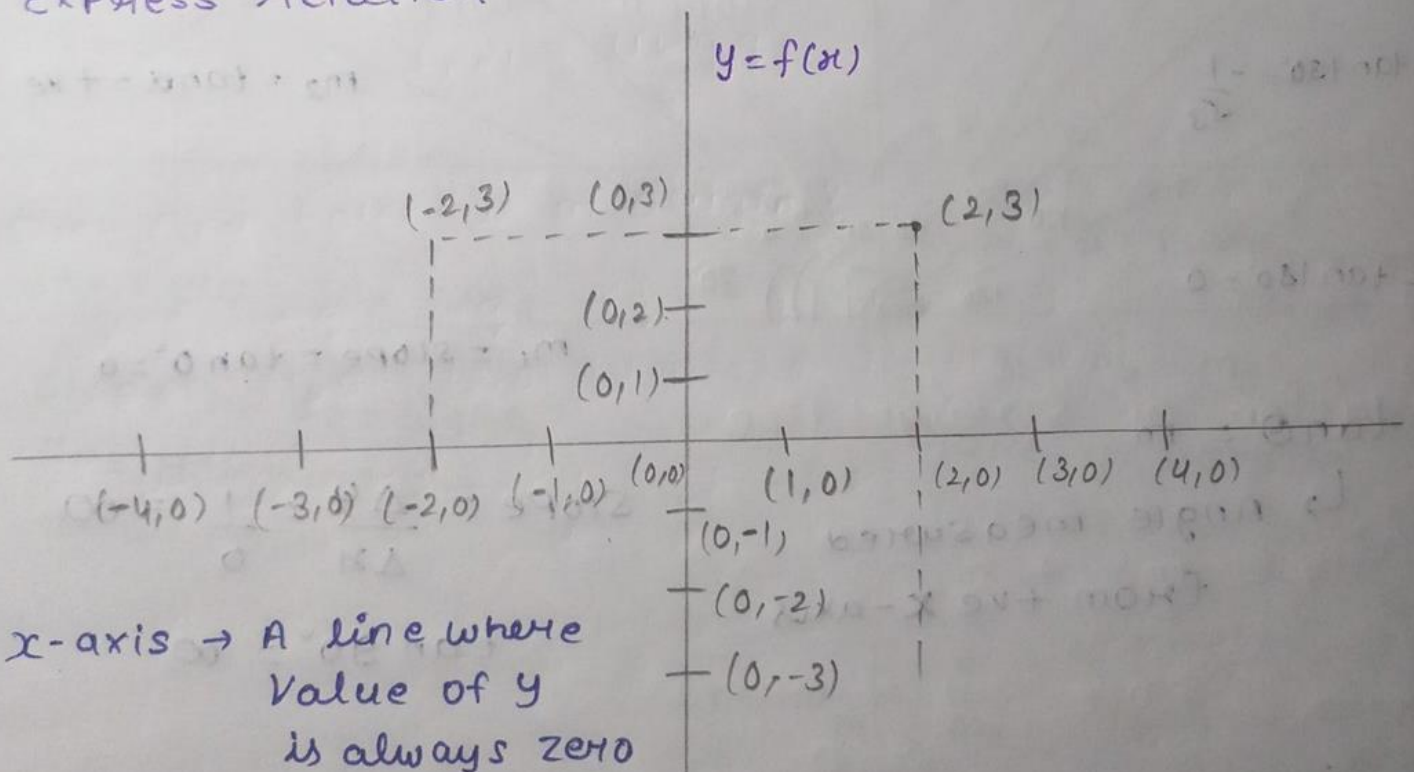 y = f(x)
(-2,3) (0,3) (2,3)
(0,2)
(0,1)
(-4,0) (-3,0) (-2,0) (-1,0) (0,0) (1,0) (2,0) (3,0) (4,0)
(0,-1)
(0,-2)
(0,-3)
x-axis → A line where
Value of y
is always zero